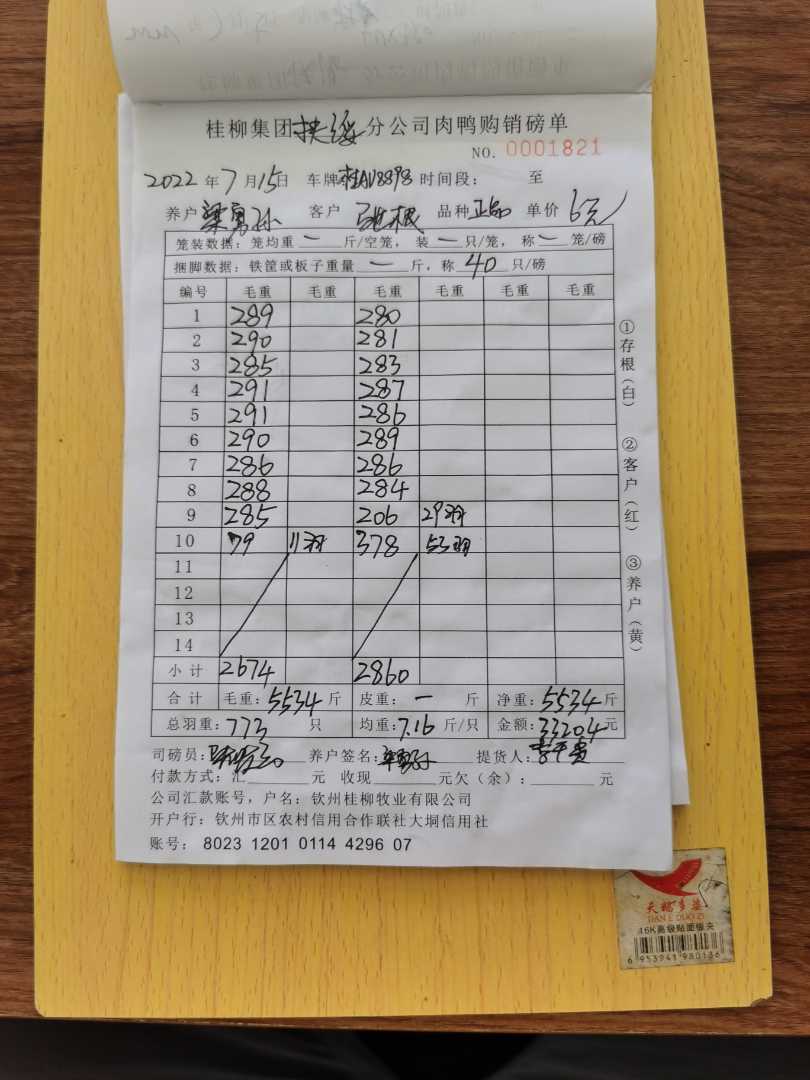 桂柳集团扶绥分公司肉鸭购销磅单
NO. 0001821
2022年7月15日 车牌桂AV8898 时间段： 至
养户 梁勇孙 客户 品种 正品 单价 6元
笼装数据：笼均重 一 斤/空笼，装 一 只/笼，称 一 笼/磅
捆脚数据：铁筐或板子重量 一 斤，称 40 只/磅
编号 毛重 毛重 毛重 毛重 毛重 毛重
1 289 280
2 290 281
3 285 283
4 291 287
5 291 286
6 290 289
7 286 286
8 288 284
9 285 206 29羽
10 79 11羽 378 53羽
11
12
13
14
小计 2674 2860
合计 毛重：5534斤 皮重：一 斤 净重：5534斤
总羽重：773 只 均重：7.16斤/只 金额：33204元
司磅员： 养户签名： 提货人：
付款方式：汇 元 收现 元欠（余）： 元
公司汇款账号，户名：钦州桂柳牧业有限公司
开户行：钦州市区农村信用合作联社大垌信用社
账号： 8023 1201 0114 4296 07
①存根（白）
②客户（红）
③养户（黄）
天鹅多姿
TIAN E DUO ZI
16K高级贴面板夹
6 953941 980136